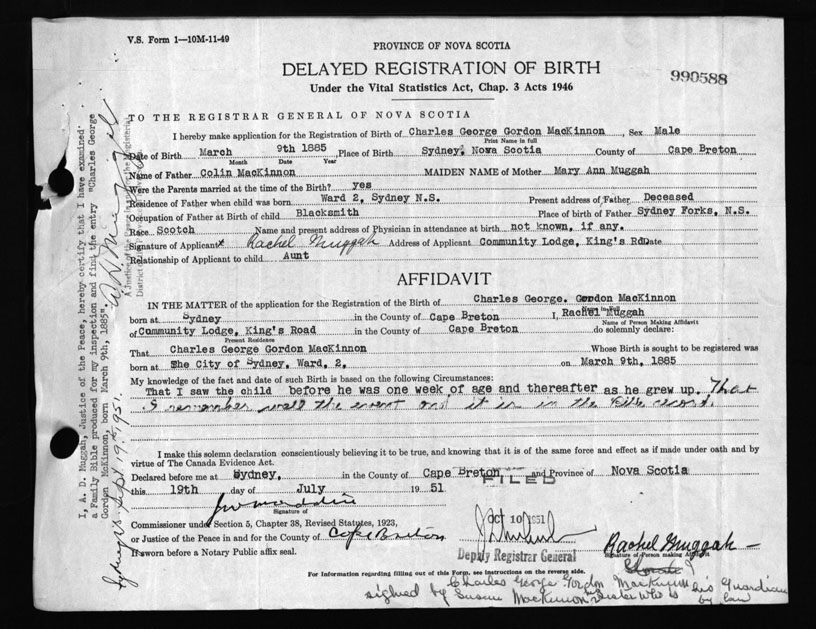 V.S. Form 1—10M-11-49
PROVINCE OF NOVA SCOTIA
DELAYED REGISTRATION OF BIRTH
Under the Vital Statistics Act, Chap. 3 Acts 1946
990588
TO THE REGISTRAR GENERAL OF NOVA SCOTIA
I hereby make application for the Registration of Birth of Charles George Gordon MacKinnon, Sex Male
Print Name in full
Date of Birth March 9th 1885 Place of Birth Sydney, Nova Scotia County of Cape Breton
Month Date Year
Name of Father Colin MacKinnon MAIDEN NAME of Mother Mary Ann Muggah
Were the Parents married at the time of the Birth? yes
Residence of Father when child was born Ward 2, Sydney N.S. Present address of Father Deceased
Occupation of Father at Birth of child Blacksmith Place of birth of Father Sydney Forks, N.S.
Race Scotch Name and present address of Physician in attendance at birth not known, if any.
Signature of Applicant x Rachel Muggah Address of Applicant Community Lodge, King's Rd. Date
Relationship of Applicant to child Aunt
AFFIDAVIT
IN THE MATTER of the application for the Registration of the Birth of Charles George. Gordon MacKinnon
born at Sydney in the County of Cape Breton I, Rachel Muggah
Name of Person Making Affidavit
of Community Lodge, King's Road in the County of Cape Breton do solemnly declare:
Present Residence
That Charles George Gordon MacKinnon Whose Birth is sought to be registered was
born at The City of Sydney, Ward, 2, on March 9th, 1885
My knowledge of the fact and date of such Birth is based on the following Circumstances:
That I saw the child before he was one week of age and thereafter as he grew up. That
I remember well the event and it is in the Bible record.
I make this solemn declaration conscientiously believing it to be true, and knowing that it is of the same force and effect as if made under oath and by
virtue of The Canada Evidence Act.
Declared before me at Sydney, in the County of Cape Breton and Province of Nova Scotia
this 19th day of July 1951
FILED
OCT 10 1951
Signature of
Commissioner under Section 5, Chapter 38, Revised Statutes, 1923,
or Justice of the Peace in and for the County of Cape Breton
If sworn before a Notary Public affix seal.
Deputy Registrar General
Rachel Muggah
Signature of Person making Affidavit
For Information regarding filling out of this Form, see instructions on the reverse side.
Charles George Gordon MacKinnon
signed by Susan MacKinnon sister who is his Guardian by law
I, A. D. Muggah, Justice of the Peace, hereby certify that I have examined
a Family Bible produced for my inspection and find the entry "Charles George
Gordon McKinnon, born March 9th, 1885".
Sydney N.S. Sept 19th, 1951.
A D Muggah